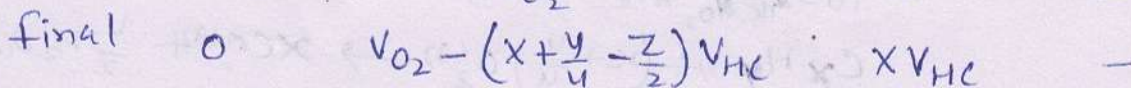 final 0 V_{O_2} - (x + \frac{y}{4} - \frac{z}{2}) V_{HC} x V_{HC} -